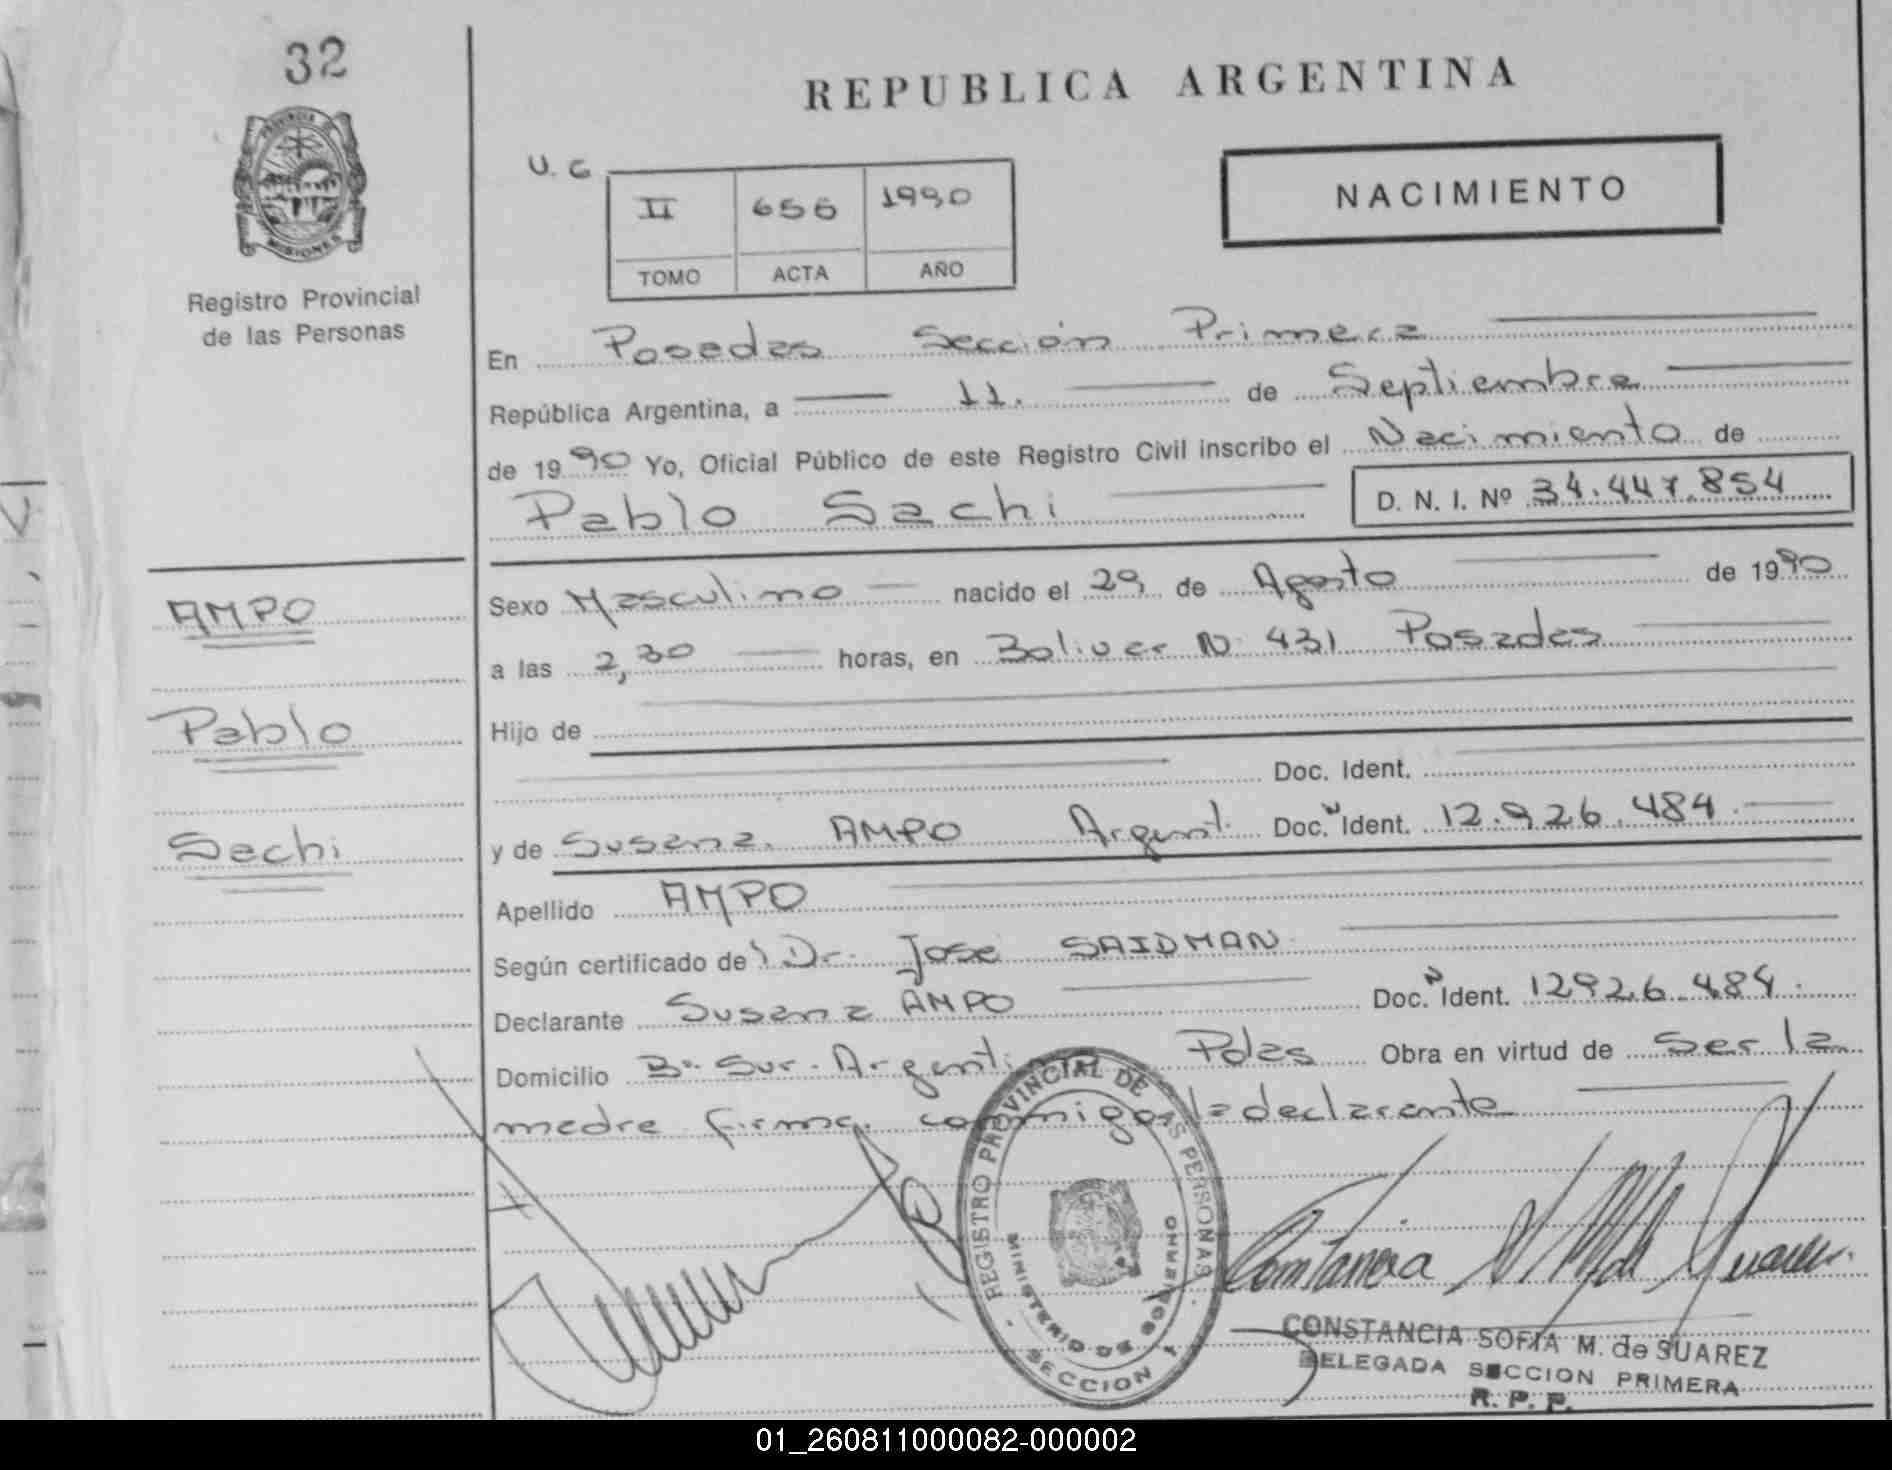 32
REPUBLICA ARGENTINA
PROVINCIA DE
MISIONES
Registro Provincial
de las Personas
U. G
II 656 1990
TOMO ACTA AÑO
NACIMIENTO
En Posadas Sección Primera
República Argentina, a 11. de Septiembre
de 1990 Yo, Oficial Público de este Registro Civil inscribo el Nacimiento de
Pablo Sachi D. N. I. Nº 34.447.854
Sexo Masculino nacido el 29 de Agosto de 1990
a las 2,30 horas, en Bolivar N 431 Posadas
Hijo de
Doc. Ident.
y de Susana AMPO Argent. Doc. N Ident. 12.926.484
Apellido AMPO
Según certificado del Dr. Jose SAIDMAN
Declarante Susana AMPO Doc. N Ident. 12926.484.
Domicilio Bº Sur-Argenti Pdas Obra en virtud de Ser la
madre firma conmigo la declarante
AMPO
Pablo
Sachi
REGISTRO PROVINCIAL DE LAS PERSONAS
MINISTERIO DE GOBIERNO
SECCION 1
Constancia Suarez
CONSTANCIA SOFIA M. de SUAREZ
DELEGADA SECCION PRIMERA
R. P. P.
01_260811000082-000002